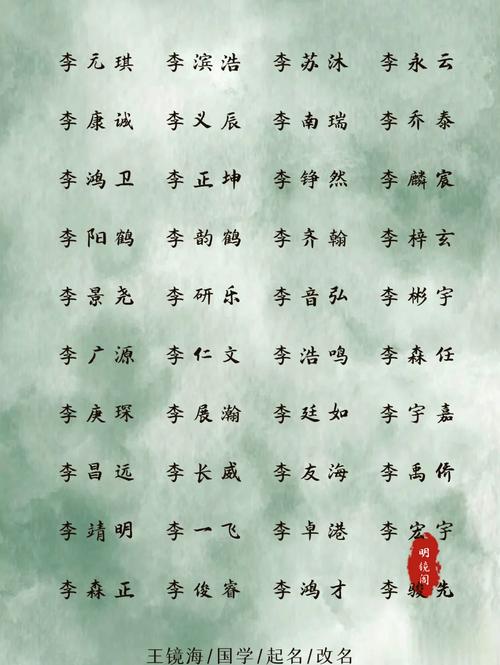 李元琪 李滨浩 李苏沐 李永云
李康诚 李义辰 李南瑞 李乔泰
李鸿卫 李正坤 李铮然 李麟宸
李阳鹤 李韵鹤 李齐翰 李梓玄
李景尧 李研乐 李音弘 李彬宇
李广源 李仁文 李浩鸣 李森任
李庚琛 李展瀚 李廷如 李宇嘉
李昌远 李长威 李友海 李禹侨
李靖明 李一飞 李卓港 李宏宇
李森正 李俊睿 李鸿才 李骏先
明镜阁
王镜海/国学/起名/改名